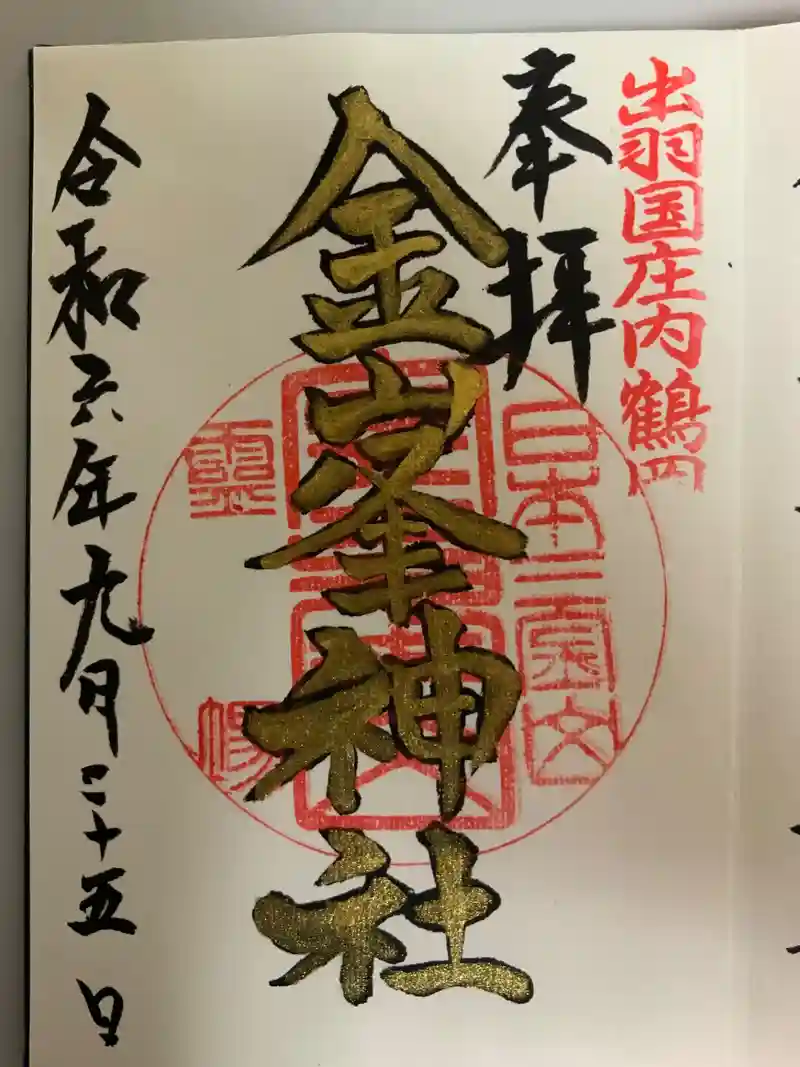 出羽国庄内鶴岡
奉拝
金峯神社
日本三
文
霊
令和六年九月二十五日